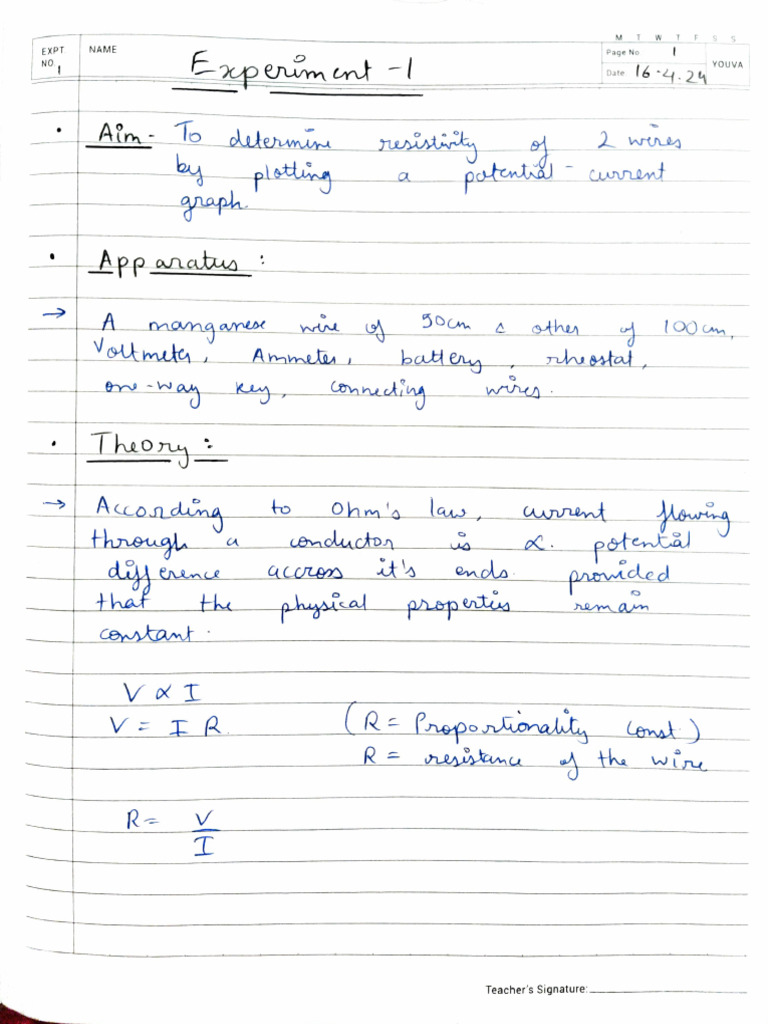 M T W T F S S
EXPT. NO. 1 NAME Experiment - 1 Page No. 1 YOUVA
Date: 16.4.24
• Aim - To determine resistivity of 2 wires
by plotting a potential-current
graph.
• Apparatus :
→ A manganese wire of 50cm & other of 100cm,
Voltmeter, Ammeter, battery, rheostat,
one-way key, connecting wires.
• Theory :
→ According to Ohm's law, current flowing
through a conductor is ∝. potential
difference accross it's ends. provided
that the physical properties remain
constant.
V ∝ I
V = I R (R = Proportionality const.)
R = resistance of the wire
R = V
I
Teacher's Signature: